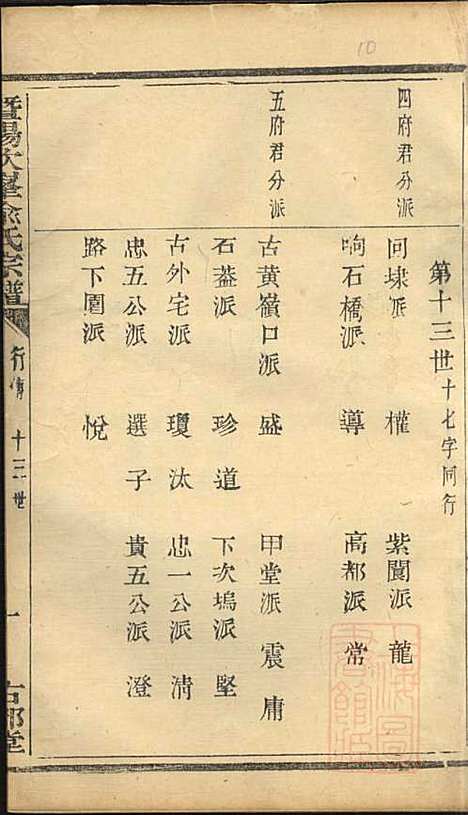 10
第十三世十七字同行
四府君分派
回埭派 權 紫閬派 龍
响石橋派 導 高都派 常
五府君分派
古黄嶺口派 盛 甲堂派 震 庸
石蓋派 珍 道 下次塢派 堅
古外宅派 瓊 汰 忠一公派 清
忠五公派 選 子 貴五公派 澄
路下園派 悅
暨陽次峯俞氏宗譜
行傳 十三世
一